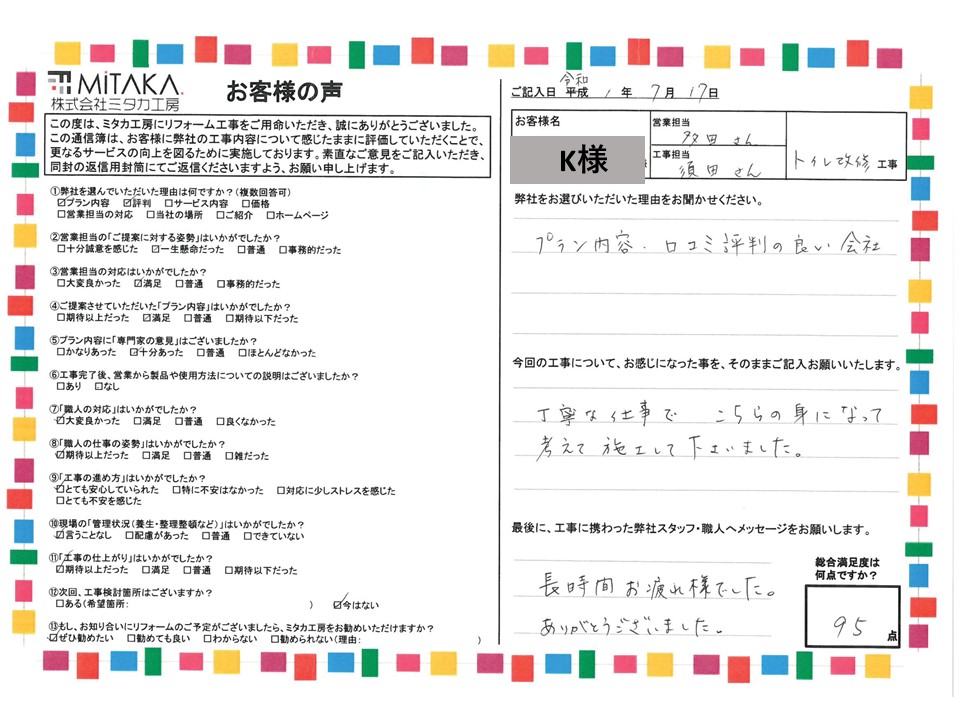 MiTAKA.
株式会社ミタカ工房
お客様の声
この度は、ミタカ工房にリフォーム工事をご用命いただき、誠にありがとうございました。
この通信簿は、お客様に弊社の工事内容について感じたままに評価していただくことで、
更なるサービスの向上を図るために実施しております。素直なご意見をご記入いただき、
同封の返信用封筒にてご返信くださいますよう、お願い申し上げます。
①弊社を選んでいただいた理由は何ですか？(複数回答可)
☑プラン内容 ☑評判 □サービス内容 □価格
□営業担当の対応 □当社の場所 □ご紹介 □ホームページ
②営業担当の「ご提案に対する姿勢」はいかがでしたか？
□十分誠意を感じた ☑一生懸命だった □普通 □事務的だった
③営業担当の対応はいかがでしたか？
□大変良かった ☑満足 □普通 □事務的だった
④ご提案させていただいた「プラン内容」はいかがでしたか？
□期待以上だった ☑満足 □普通 □期待以下だった
⑤プラン内容に「専門家の意見」はございましたか？
□かなりあった ☑十分あった □普通 □ほとんどなかった
⑥工事完了後、営業から製品や使用方法についての説明はございましたか？
□あり □なし
⑦「職人の対応」はいかがでしたか？
☑大変良かった □満足 □普通 □良くなかった
⑧「職人の仕事の姿勢」はいかがでしたか？
☑期待以上だった □満足 □普通 □雑だった
⑨「工事の進め方」はいかがでしたか？
☑とても安心していられた □特に不安はなかった □対応に少しストレスを感じた
□とても不安を感じた
⑩現場の「管理状況(養生・整理整頓など)」はいかがでしたか？
☑言うことなし □配慮があった □普通 □できていない
⑪「工事の仕上がり」はいかがでしたか？
☑期待以上だった □満足 □普通 □期待以下だった
⑫次回、工事検討箇所はございますか？
□ある(希望箇所: ) ☑今はない
⑬もし、お知り合いにリフォームのご予定がございましたら、ミタカ工房をお勧めいただけますか？
☑ぜひ勧めたい □勧めても良い □わからない □勧められない(理由: )
令和
ご記入日 平成 1 年 7 月 17 日
お客様名
K様
営業担当
多田 さん
工事担当
須田 さん
トイレ改修 工事
弊社をお選びいただいた理由をお聞かせください。
プラン内容・口コミ評判の良い会社
今回の工事について、お感じになった事を、そのままご記入お願いいたします。
丁寧な仕事で こちらの身になって
考えて施工して下さいました。
最後に、工事に携わった弊社スタッフ・職人へメッセージをお願いします。
長時間お疲れ様でした。
ありがとうございました。
総合満足度は
何点ですか？
95 点